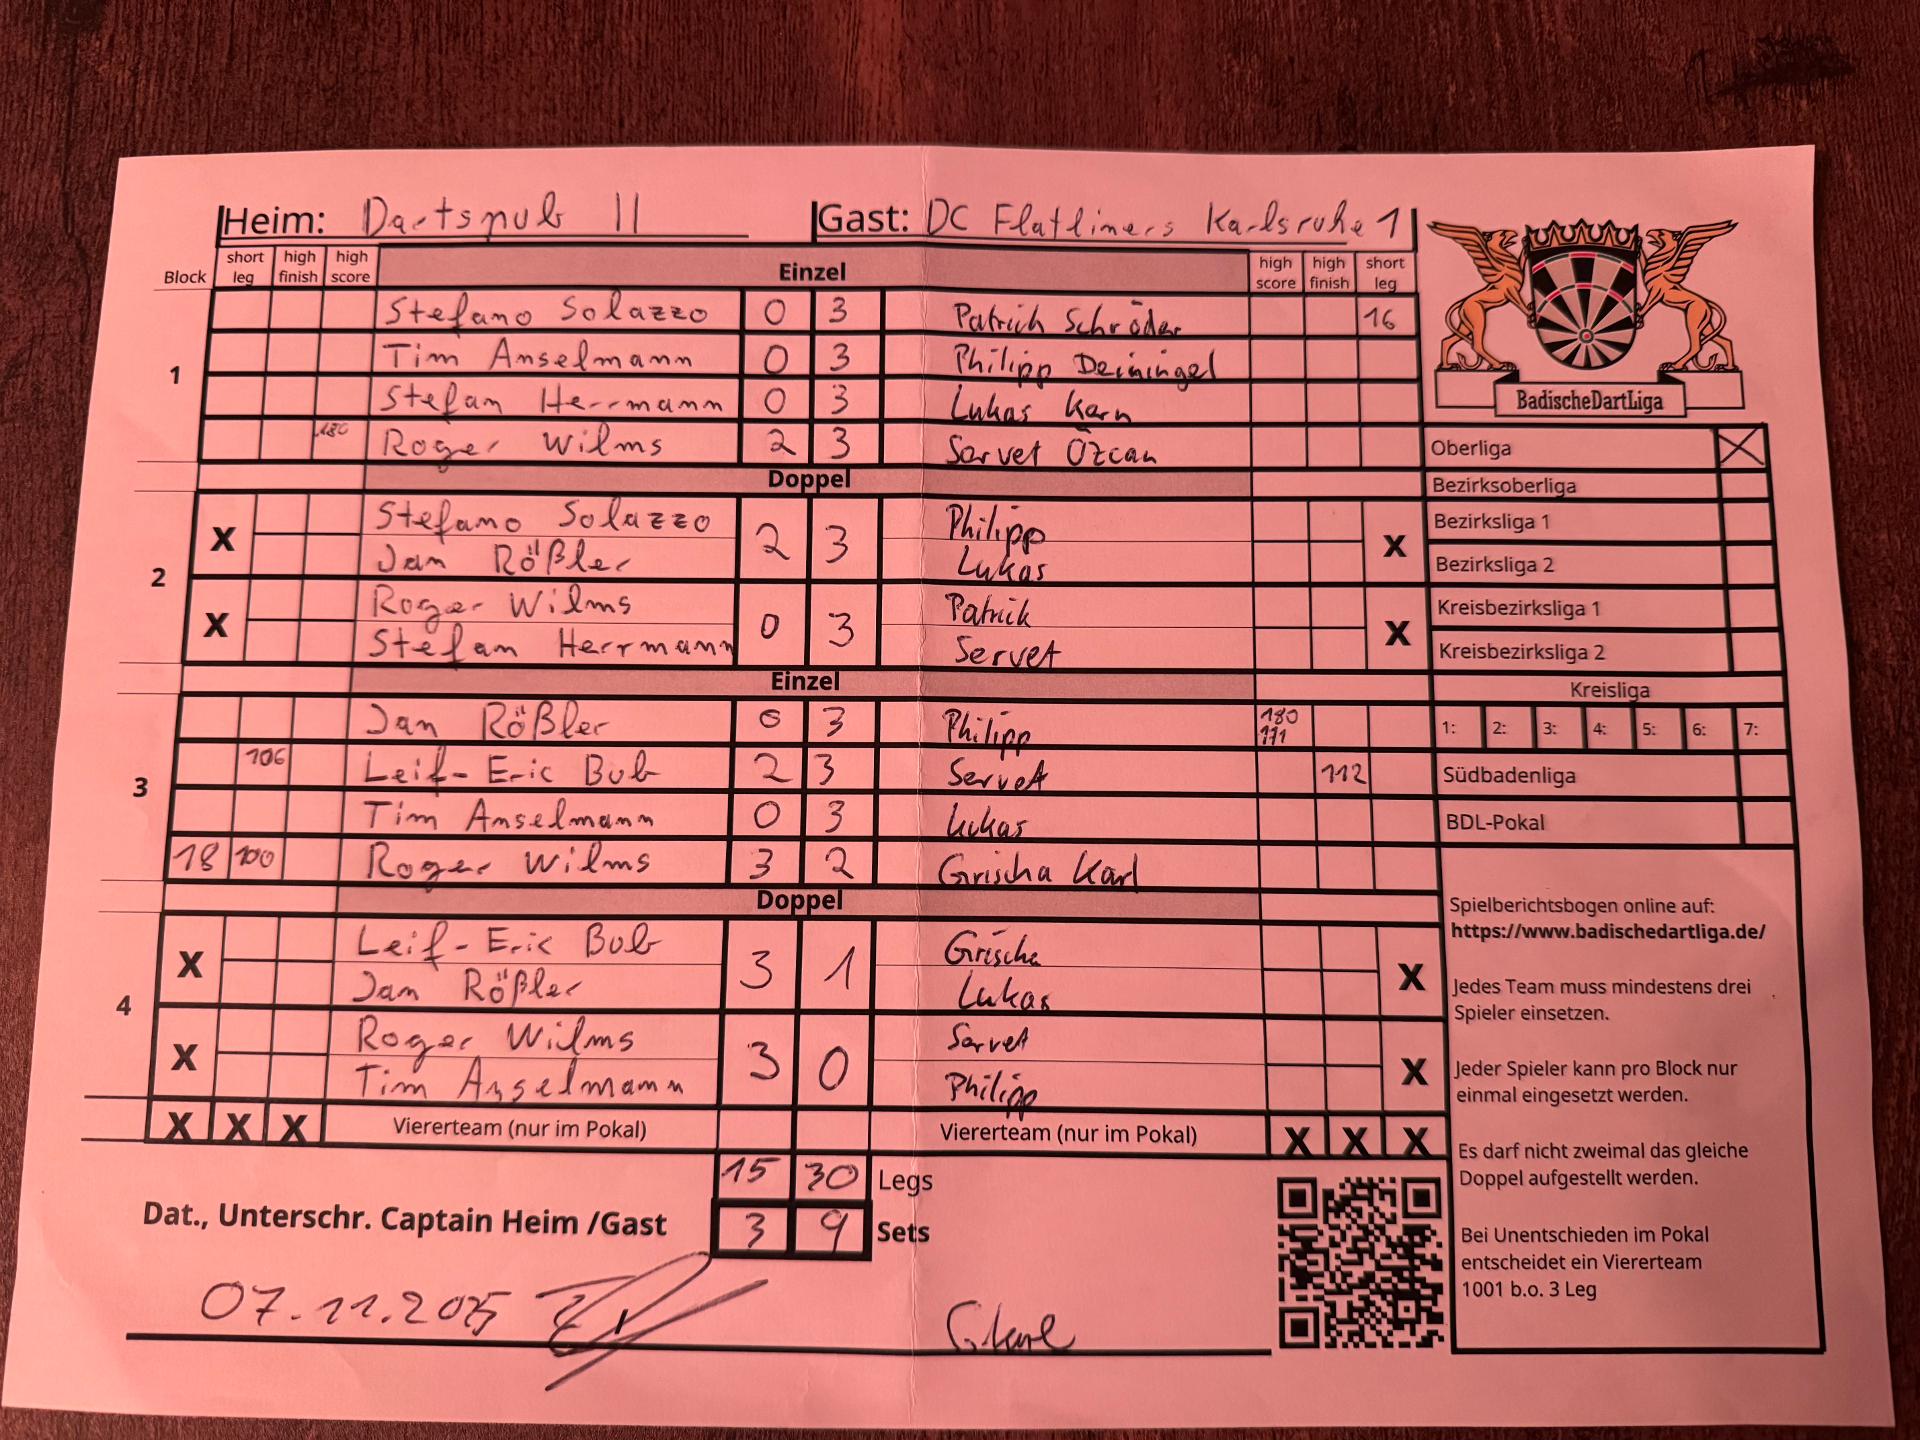 Heim: Dartspub II Gast: DC Flatliners Karlsruhe 1
Block short leg high finish high score Einzel high score high finish short leg
1
Stefano Solazzo 0 3 Patrich Schröder 16
Tim Anselmann 0 3 Philipp Deiningel
Stefan Herrmann 0 3 Lukas Karn
180 Roger Wilms 2 3 Servet Özcan
Doppel
2
X Stefano Solazzo 2 3 Philipp X
Jan Rößler Lukas
X Roger Wilms 0 3 Patrik X
Stefan Herrmann Servet
Einzel
3
Jan Rößler 0 3 Philipp 180
171
106 Leif-Eric Bub 2 3 Servet 112
Tim Anselmann 0 3 Lukas
18 100 Roger Wilms 3 2 Grischa Karl
Doppel
4
X Leif-Eric Bub 3 1 Grischa X
Jan Rößler Lukas
X Roger Wilms 3 0 Servet X
Tim Anselmann Philipp
X X X Viererteam (nur im Pokal) Viererteam (nur im Pokal) X X X
15 30 Legs
Dat., Unterschr. Captain Heim /Gast 3 9 Sets
07.11.2025 G. Karl
BadischeDartLiga
Oberliga X
Bezirksoberliga
Bezirksliga 1
Bezirksliga 2
Kreisbezirksliga 1
Kreisbezirksliga 2
Kreisliga
1: 2: 3: 4: 5: 6: 7:
Südbadenliga
BDL-Pokal
Spielberichtsbogen online auf:
https://www.badischedartliga.de/
Jedes Team muss mindestens drei
Spieler einsetzen.
Jeder Spieler kann pro Block nur
einmal eingesetzt werden.
Es darf nicht zweimal das gleiche
Doppel aufgestellt werden.
Bei Unentschieden im Pokal
entscheidet ein Viererteam
1001 b.o. 3 Leg